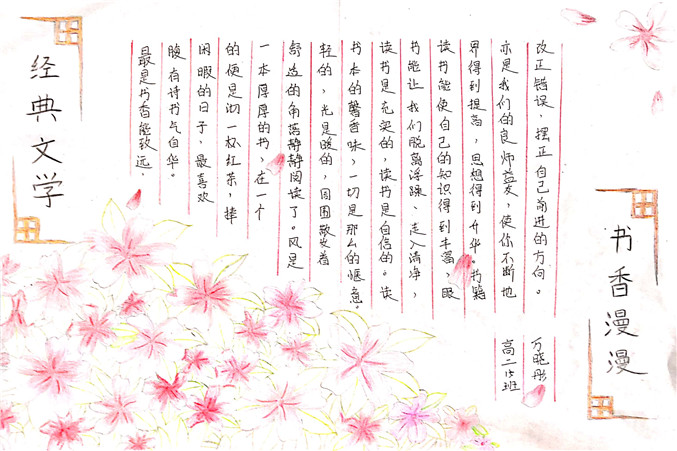 经典文学
最是书香能致远。
腹有诗书气自华。
闲暇的日子,最喜欢
的便是沏一杯红茶,捧
一本厚厚的书,在一个
舒适的角落静静阅读了。风是
轻的,光是暖的,周围散发着
书本的馨香味,一切是那么的惬意。
读书是充实的,读书是自信的。读
书能让我们脱离浮躁、走入清净,
读书能使自己的知识得到丰富,眼
界得到提高,思想得到升华。书籍
亦是我们的良师益友,使你不断地
改正错误,摆正自己前进的方向。
高二15班
万晓彤
书香漫漫